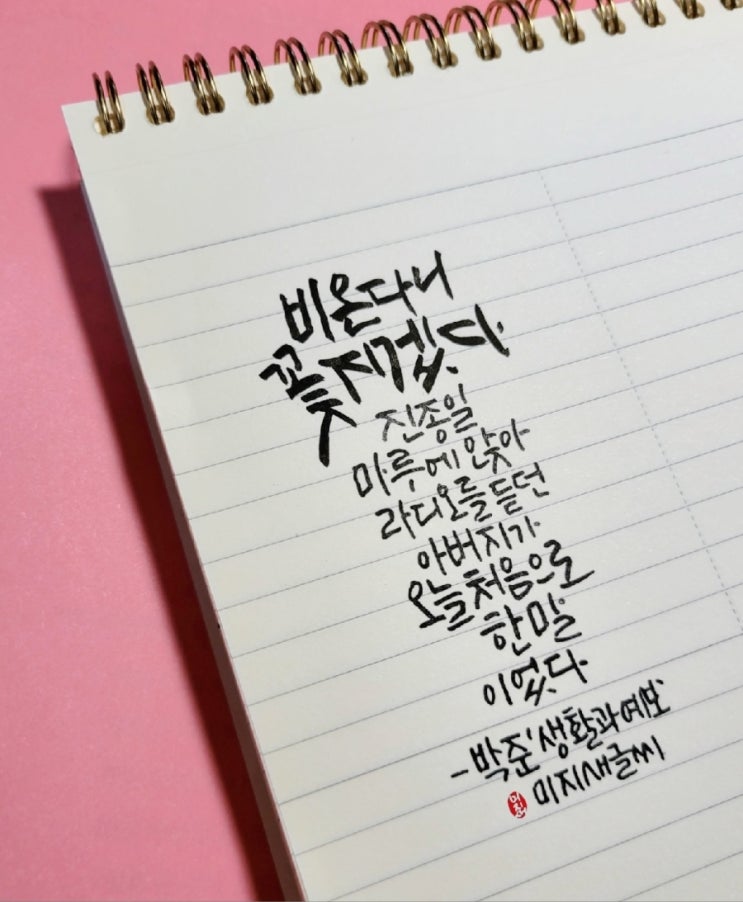 비온다니
꽃 지겠다
진종일
마루에 앉아
라디오를 듣던
아버지가
오늘 처음으로
한 말
이었다
-박준'생활과예보
미지새글씨